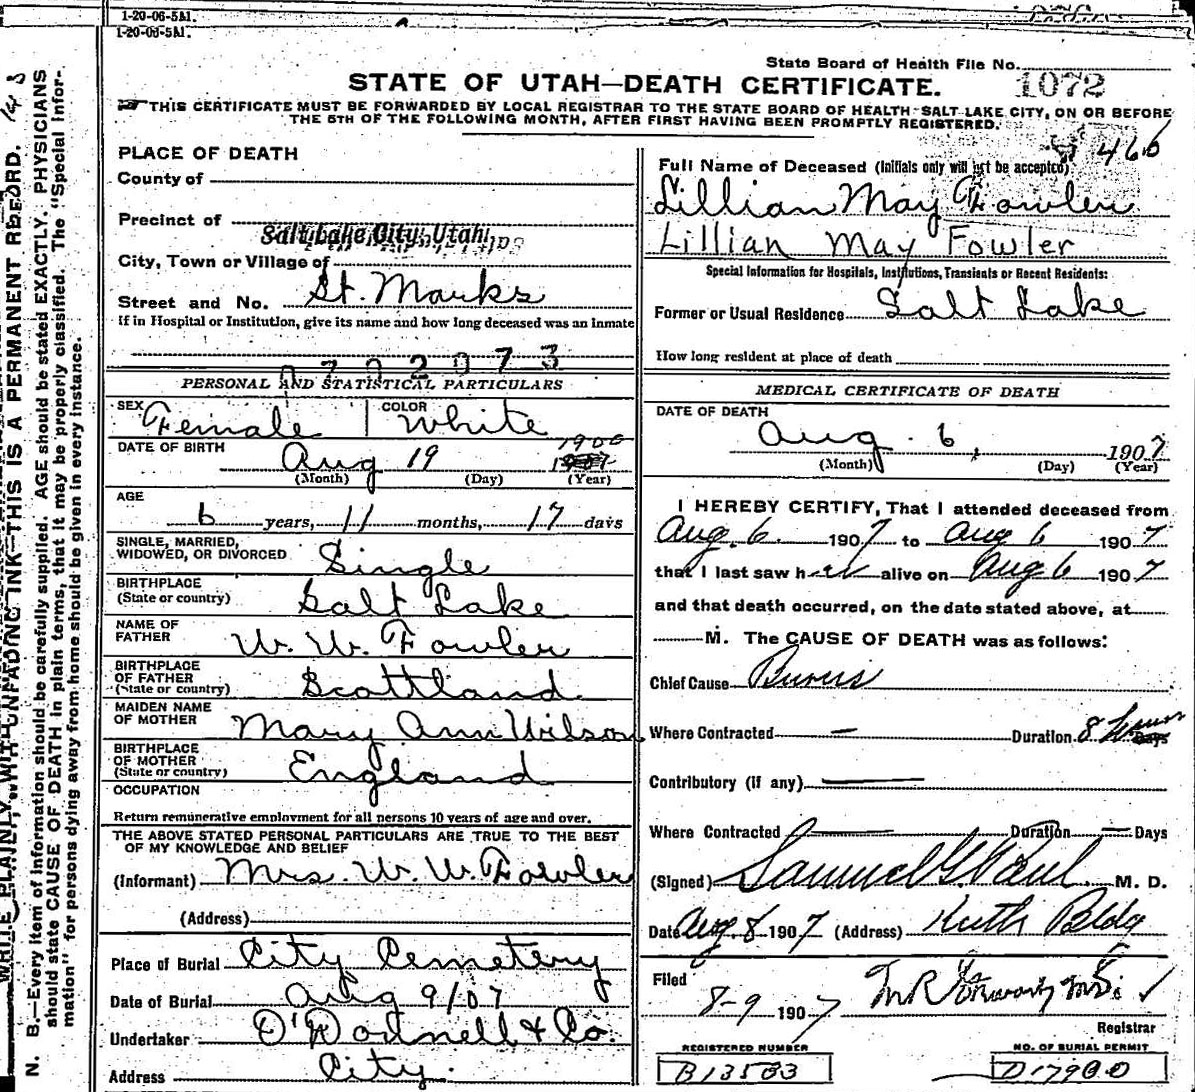 1-20-06-5M.
1-20-06-5M.
State Board of Health File No. 1072
STATE OF UTAH—DEATH CERTIFICATE.
THIS CERTIFICATE MUST BE FORWARDED BY LOCAL REGISTRAR TO THE STATE BOARD OF HEALTH SALT LAKE CITY, ON OR BEFORE
THE 5TH OF THE FOLLOWING MONTH, AFTER FIRST HAVING BEEN PROMPTLY REGISTERED.
466
PLACE OF DEATH
County of
Precinct of
Salt Lake City, Utah
City, Town or Village of
Street and No. St. Marks
If in Hospital or Institution, give its name and how long deceased was an Inmate
PERSONAL AND STATISTICAL PARTICULARS
SEX Female COLOR White
DATE OF BIRTH Aug 19 1900
(Month) (Day) (Year)
AGE
6 years, 11 months, 17 days
SINGLE, MARRIED,
WIDOWED, OR DIVORCED Single
BIRTHPLACE
(State or country) Salt Lake
NAME OF
FATHER W. W. Fowler
BIRTHPLACE
OF FATHER
(State or country) Scottland
MAIDEN NAME
OF MOTHER Mary Ann Wilson
BIRTHPLACE
OF MOTHER
(State or country) England
OCCUPATION
Return remunerative employment for all persons 10 years of age and over.
THE ABOVE STATED PERSONAL PARTICULARS ARE TRUE TO THE BEST
OF MY KNOWLEDGE AND BELIEF
(Informant) Mrs. W. W. Fowler
(Address)
Place of Burial City Cemetery
Date of Burial Aug 9/07
Undertaker O'Donnell & Co.
Address City.
Full Name of Deceased (Initials only will not be accepted)
Lillian May Fowler
Lillian May Fowler
Special Information for Hospitals, Institutions, Transients or Recent Residents:
Former or Usual Residence Salt Lake
How long resident at place of death
MEDICAL CERTIFICATE OF DEATH
DATE OF DEATH
Aug. 6, 1907
(Month) (Day) (Year)
I HEREBY CERTIFY, That I attended deceased from
Aug. 6 1907 to Aug 6 1907
that I last saw her alive on Aug 6 1907
and that death occurred, on the date stated above, at
M. The CAUSE OF DEATH was as follows:
Chief Cause Burns
Where Contracted — Duration 8 Hours Days
Contributory (if any)
Where Contracted Duration — Days
(Signed) Samuel G. Paul M. D.
Date Aug. 8 1907 (Address) Keith Bldg
Filed
8-9 1907
Registrar
REGISTERED NUMBER
B13583
NO. OF BURIAL PERMIT
WRITE PLAINLY, WITH UNFADING INK—THIS IS A PERMANENT RECORD.
N. B.—Every item of information should be carefully supplied. AGE should be stated EXACTLY. PHYSICIANS
should state CAUSE OF DEATH in plain terms, that it may be properly classified. The "Special Infor-
mation" for persons dying away from home should be given in every instance.